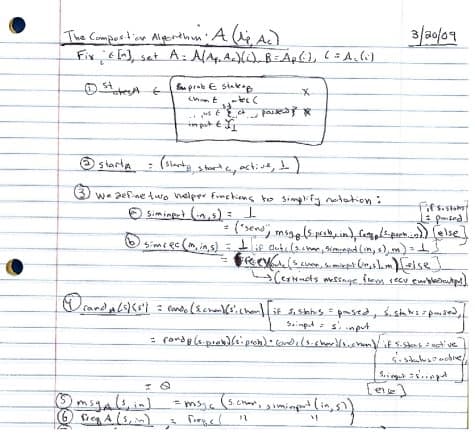 The Composition Algorithm: A(Ap, Ac) 3/20/09
Fix i ∈ [n], set A = A(Ap, Ac)(i), B = Ap(i), C = Ac(i)
① statesA ∈ s.prob ∈ statesB
s.chan ∈ statesC
input ∈ I⊥
② startA = (startB, startC, active, ⊥)
③ We define two helper functions to simplify notation:
ⓐ siminput(in,s) = ⊥ [if s.status = paused]
= ("send", msgB(s.prob, in), freqB(s.prob, in)) [else]
ⓑ simrec(m,in,s) = ⊥ [if outC(s.chan, siminput(in,s), m) = ⊥]
[else]
(extracts message from recv output)
④ randA(s)(s') = randC(s.chan)(s'.chan) [if s.status = paused, s'.status = paused,
s.input = s'.input]
= randB(s.prob)(s'.prob) · randC(s.chan)(s'.chan) [if s.status = active
s'.status = active
s.input = s'.input]
= 0 [else]
⑤ msgA(s,in) = msgC(s.chan, siminput(in,s))
⑥ freqA(s,in) = freqC( " "